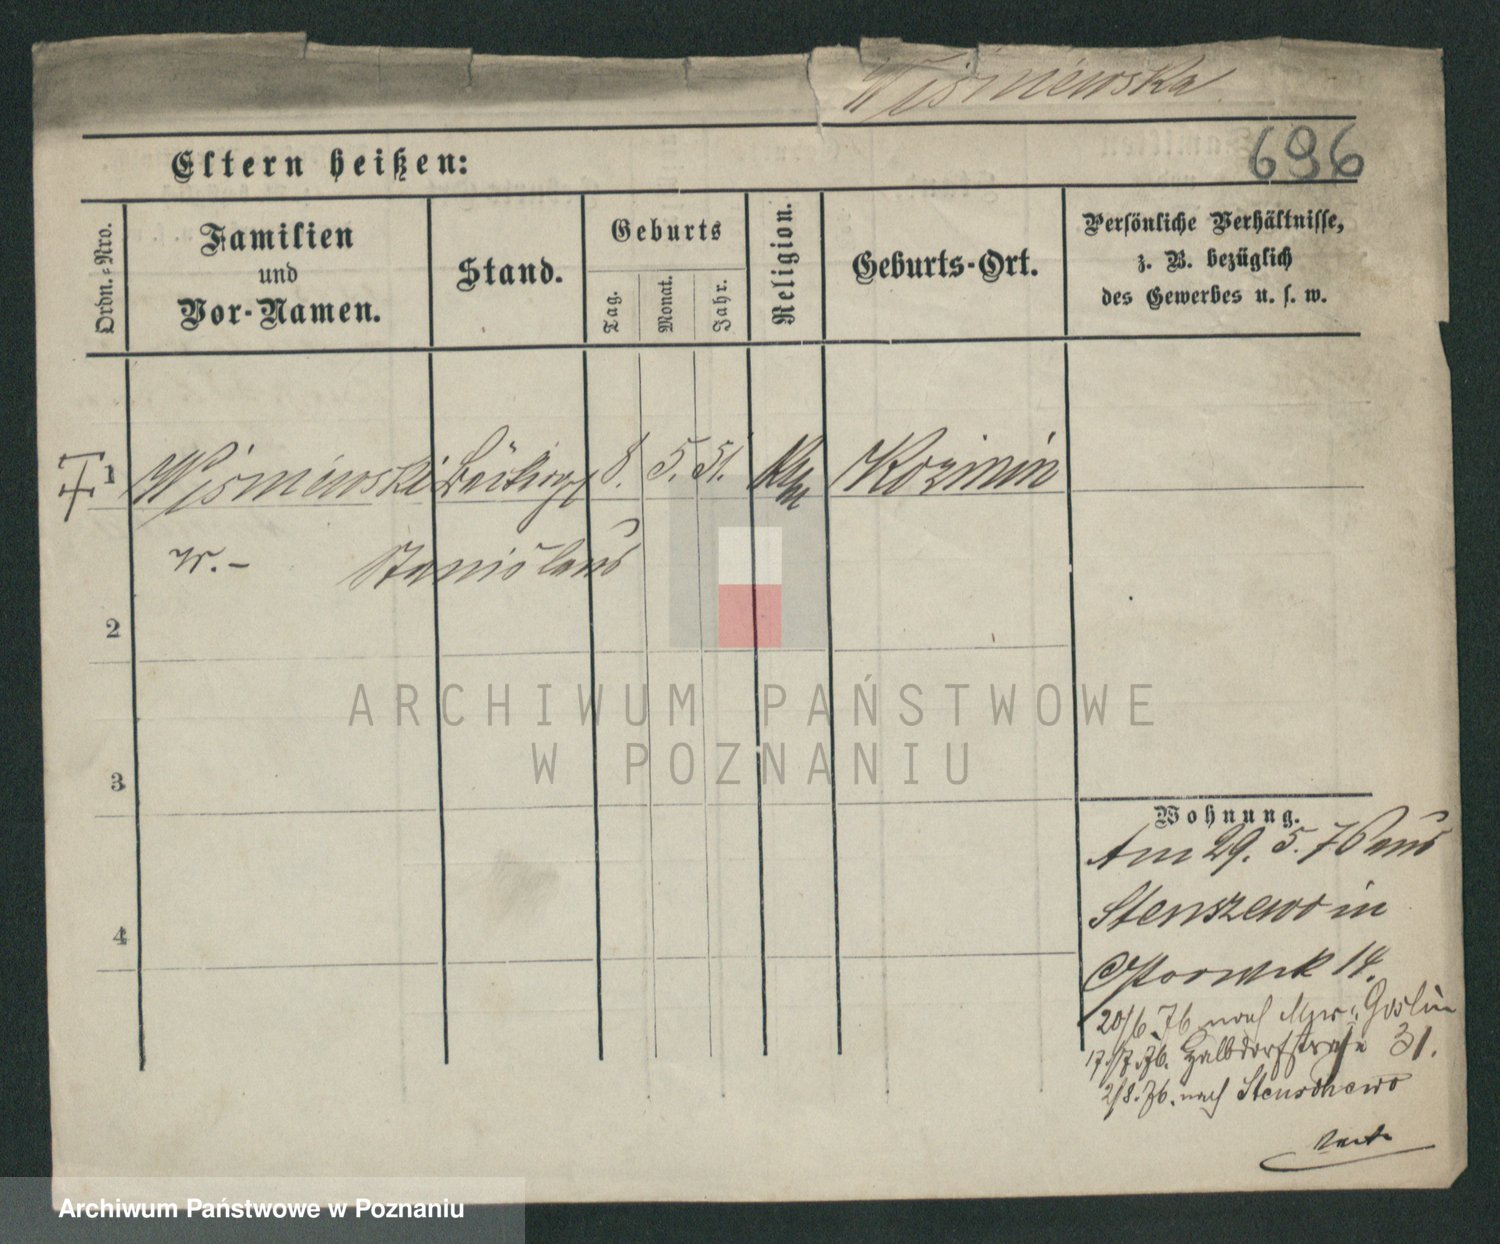 Wiśniewska
696
Eltern heißen:
Ordn.-Nro.
Familien
und
Vor-Namen.
Stand.
Geburts
Tag.
Monat.
Jahr.
Religion.
Geburts-Ort.
Persönliche Verhältnisse,
z. B. bezüglich
des Gewerbes u. s. w.
1 Wiśniewski 8. 5. 51. Kozmin
Stanislaus
2
3
4
Wohnung.
Am 29. 5. 76 aus
Stenszewo in
14.
20/6 76 nach Goslin
17./7. 76. Halbdorfstraße 31.
2/8. 76. nach Stenschewo
ARCHIWUM PAŃSTWOWE
W POZNANIU
Archiwum Państwowe w Poznaniu